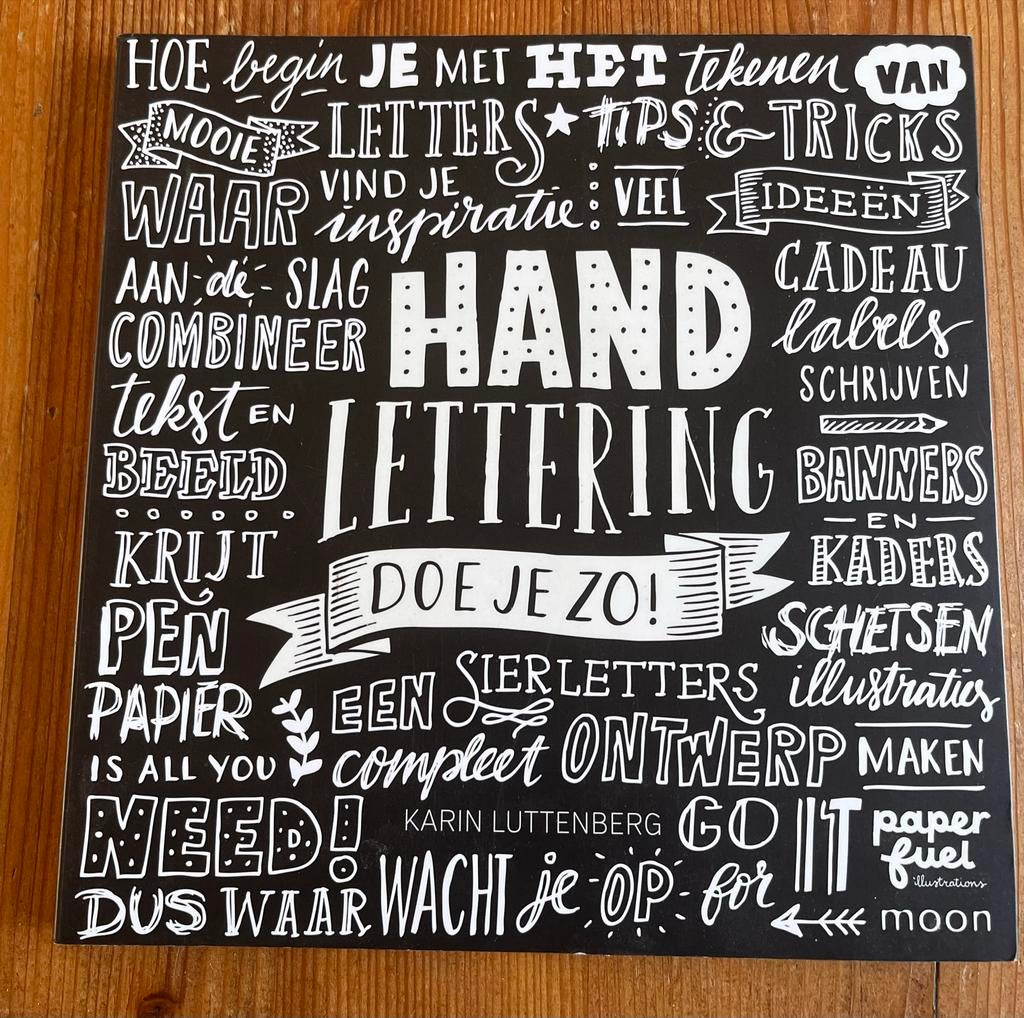 HOE begin JE MET HET tekenen VAN
MOOIE LETTERS TIPS & TRICKS
WAAR VIND JE inspiratie VEEL IDEEËN
AAN de SLAG
COMBINEER
tekst EN
BEELD
KRIJT
PEN
PAPIER
IS ALL YOU
NEED!
HAND
LETTERING
DOE JE ZO!
CADEAU
labels
SCHRIJVEN
BANNERS
EN
KADERS
SCHETSEN
illustraties
MAKEN
EEN SIERLETTERS
compleet ONTWERP
KARIN LUTTENBERG
DUS WAAR WACHT je OP go for IT
paper
fuel
illustrations
moon